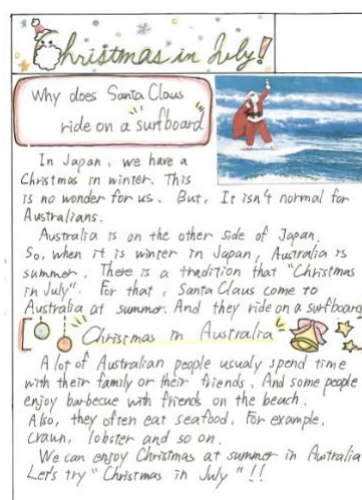 Christmas in July!
Why does Santa Claus
ride on a surfboard
In Japan, we have a
Christmas in winter. This
is no wonder for us. But, It isn't normal for
Australians.
Australia is on the other side of Japan.
So, when it is winter in Japan, Australia is
summer. There is a tradition that "Christmas
in July". For that, Santa Claus come to
Australia at summer. And they ride on a surfboard
Christmas in Australia
A lot of Australian people usualy spend time
with their family or their friends. And some people
enjoy barbecue with friends on the beach.
Also, they often eat seafood. For example,
crawn, lobster and so on.
We can enjoy Christmas at summer in Australia
Let's try "Christmas in July"!!